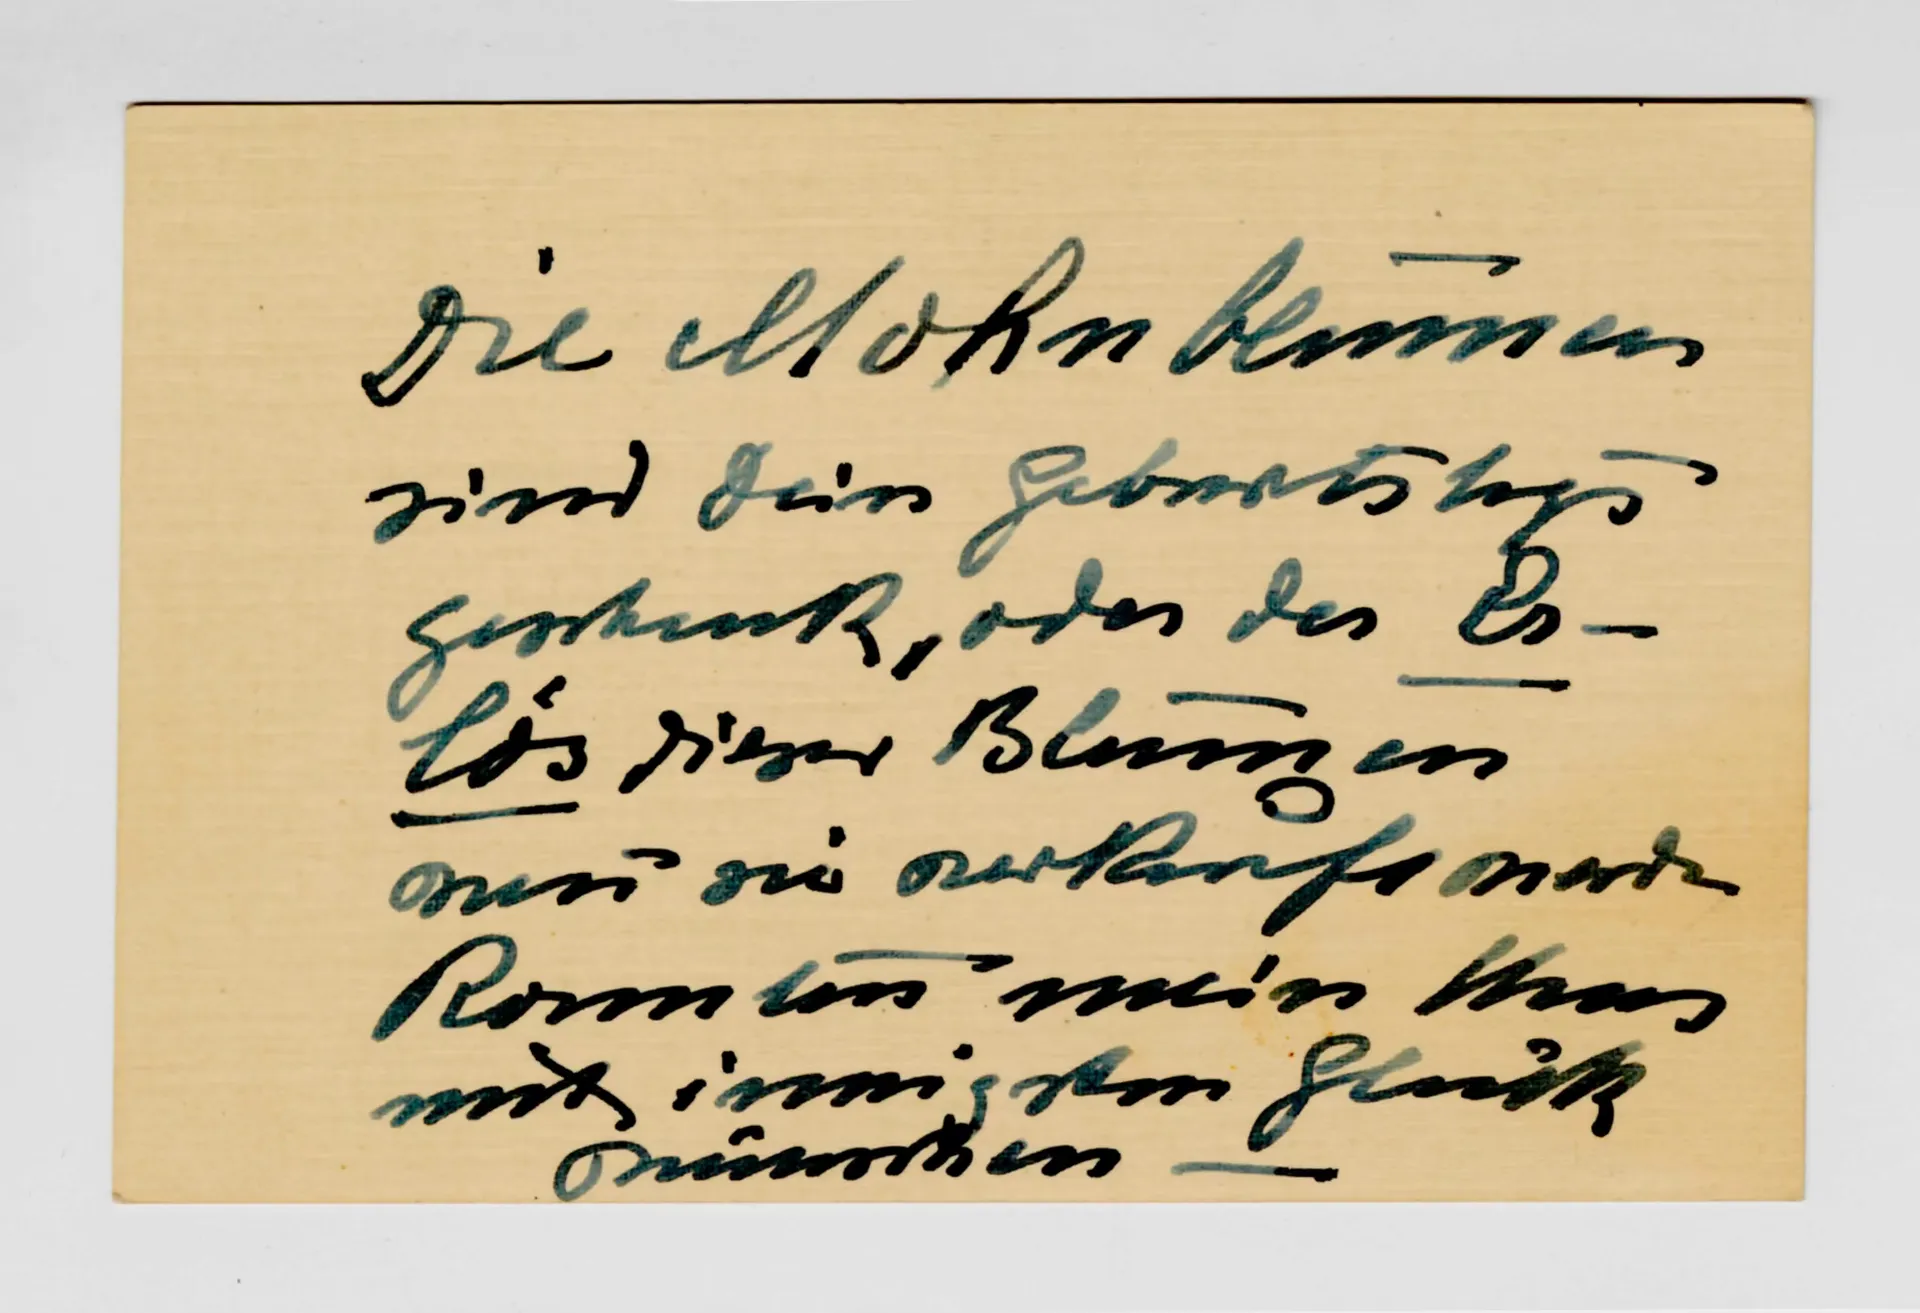 Die Mohnblumen
sind dein Geburtstags
geschenk, oder der Er-
lös dieser Blumen
wenn sie verkauft werden
konnten mein
mit innigsten Glück
wünschen —